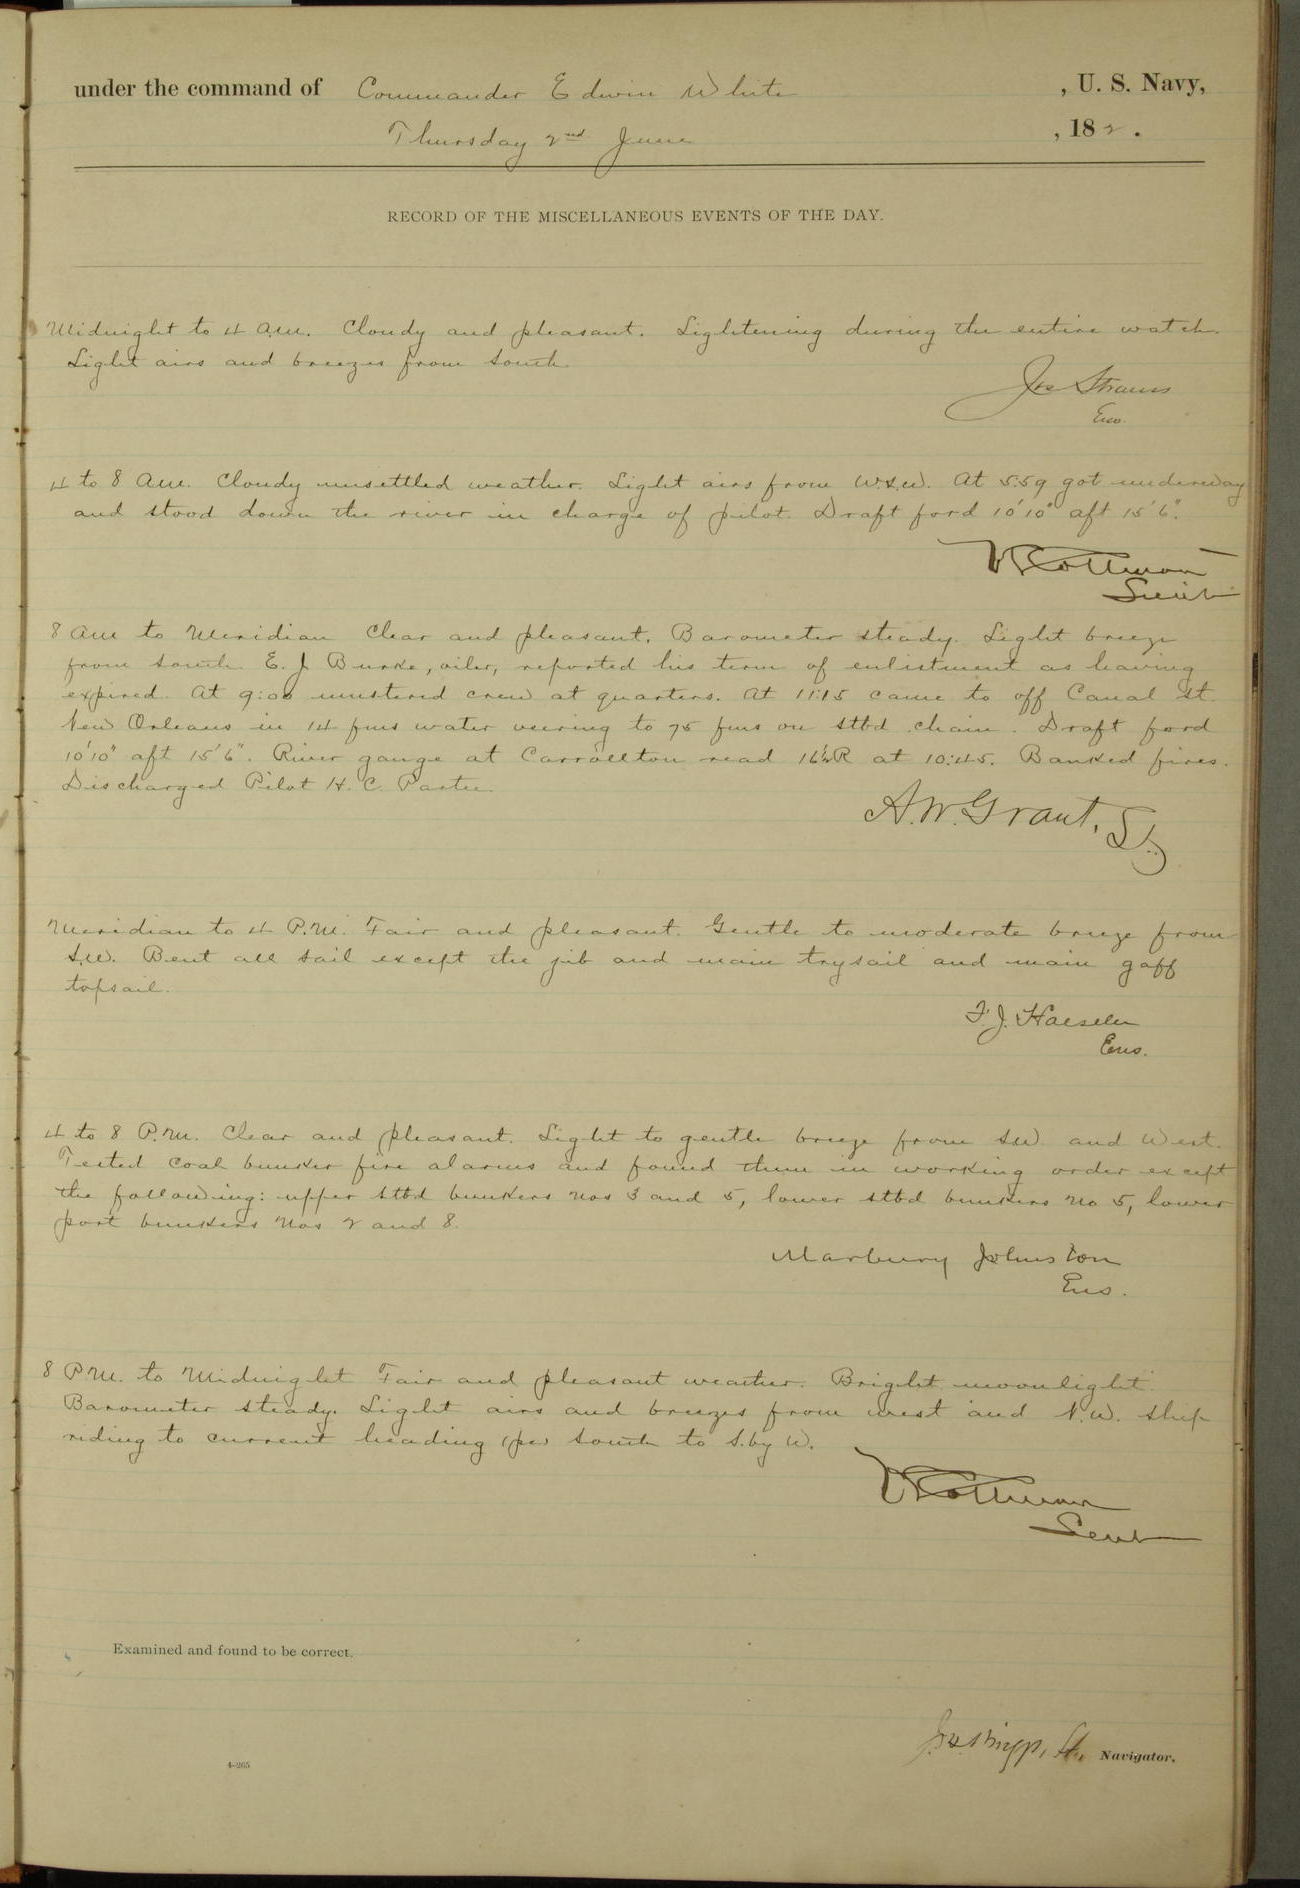 under the command of Commander Edwin White , U. S. Navy,
Thursday 2nd June , 182.
RECORD OF THE MISCELLANEOUS EVENTS OF THE DAY.
Midnight to 4 a.m. Cloudy and pleasant. Lightening during the entire watch.
Light airs and breezes from South.
Jos Strauss
Ens.
4 to 8 a.m. Cloudy unsettled weather. Light airs from W.S.W. At 5.59 got underway
and stood down the river in charge of pilot. Draft ford 10'10" aft 15'6".
Cottman
Lieut
8 am to Meridian Clear and pleasant. Barometer steady. Light breeze
from South. E. J Burke, oiler, reported his term of enlistment as having
expired. At 9:00 mustered crew at quarters. At 11:15 came to off Canal St.
New Orleans in 14 fms water veering to 75 fms on stbd chain. Draft ford
10'10" aft 15'6". River gauge at Carrollton read at 10:45. Banked fires.
Discharged Pilot H. C.
A. W. Grant,
Meridian to 4 P.M. Fair and pleasant. Gentle to moderate breeze from
S.W. Bent all sail except the jib and main trysail and main gaff
topsail.
F. J. Haeseler
Ens.
4 to 8 P.M. Clear and pleasant. Light to gentle breeze from SW. and West.
Tested coal bunker fire alarms and found them in working order except
the following: upper stbd bunkers nos 3 and 5, lower stbd bunkers no 5, lower
port bunkers nos 2 and 8.
Marbury Johnston
Ens.
8 P.M. to Midnight Fair and pleasant weather. Bright moonlight.
Barometer steady. Light airs and breezes from west and N.W. Ship
riding to current heading South to S. by W.
Cottman
Lieut
Examined and found to be correct.
4-265
Navigator.